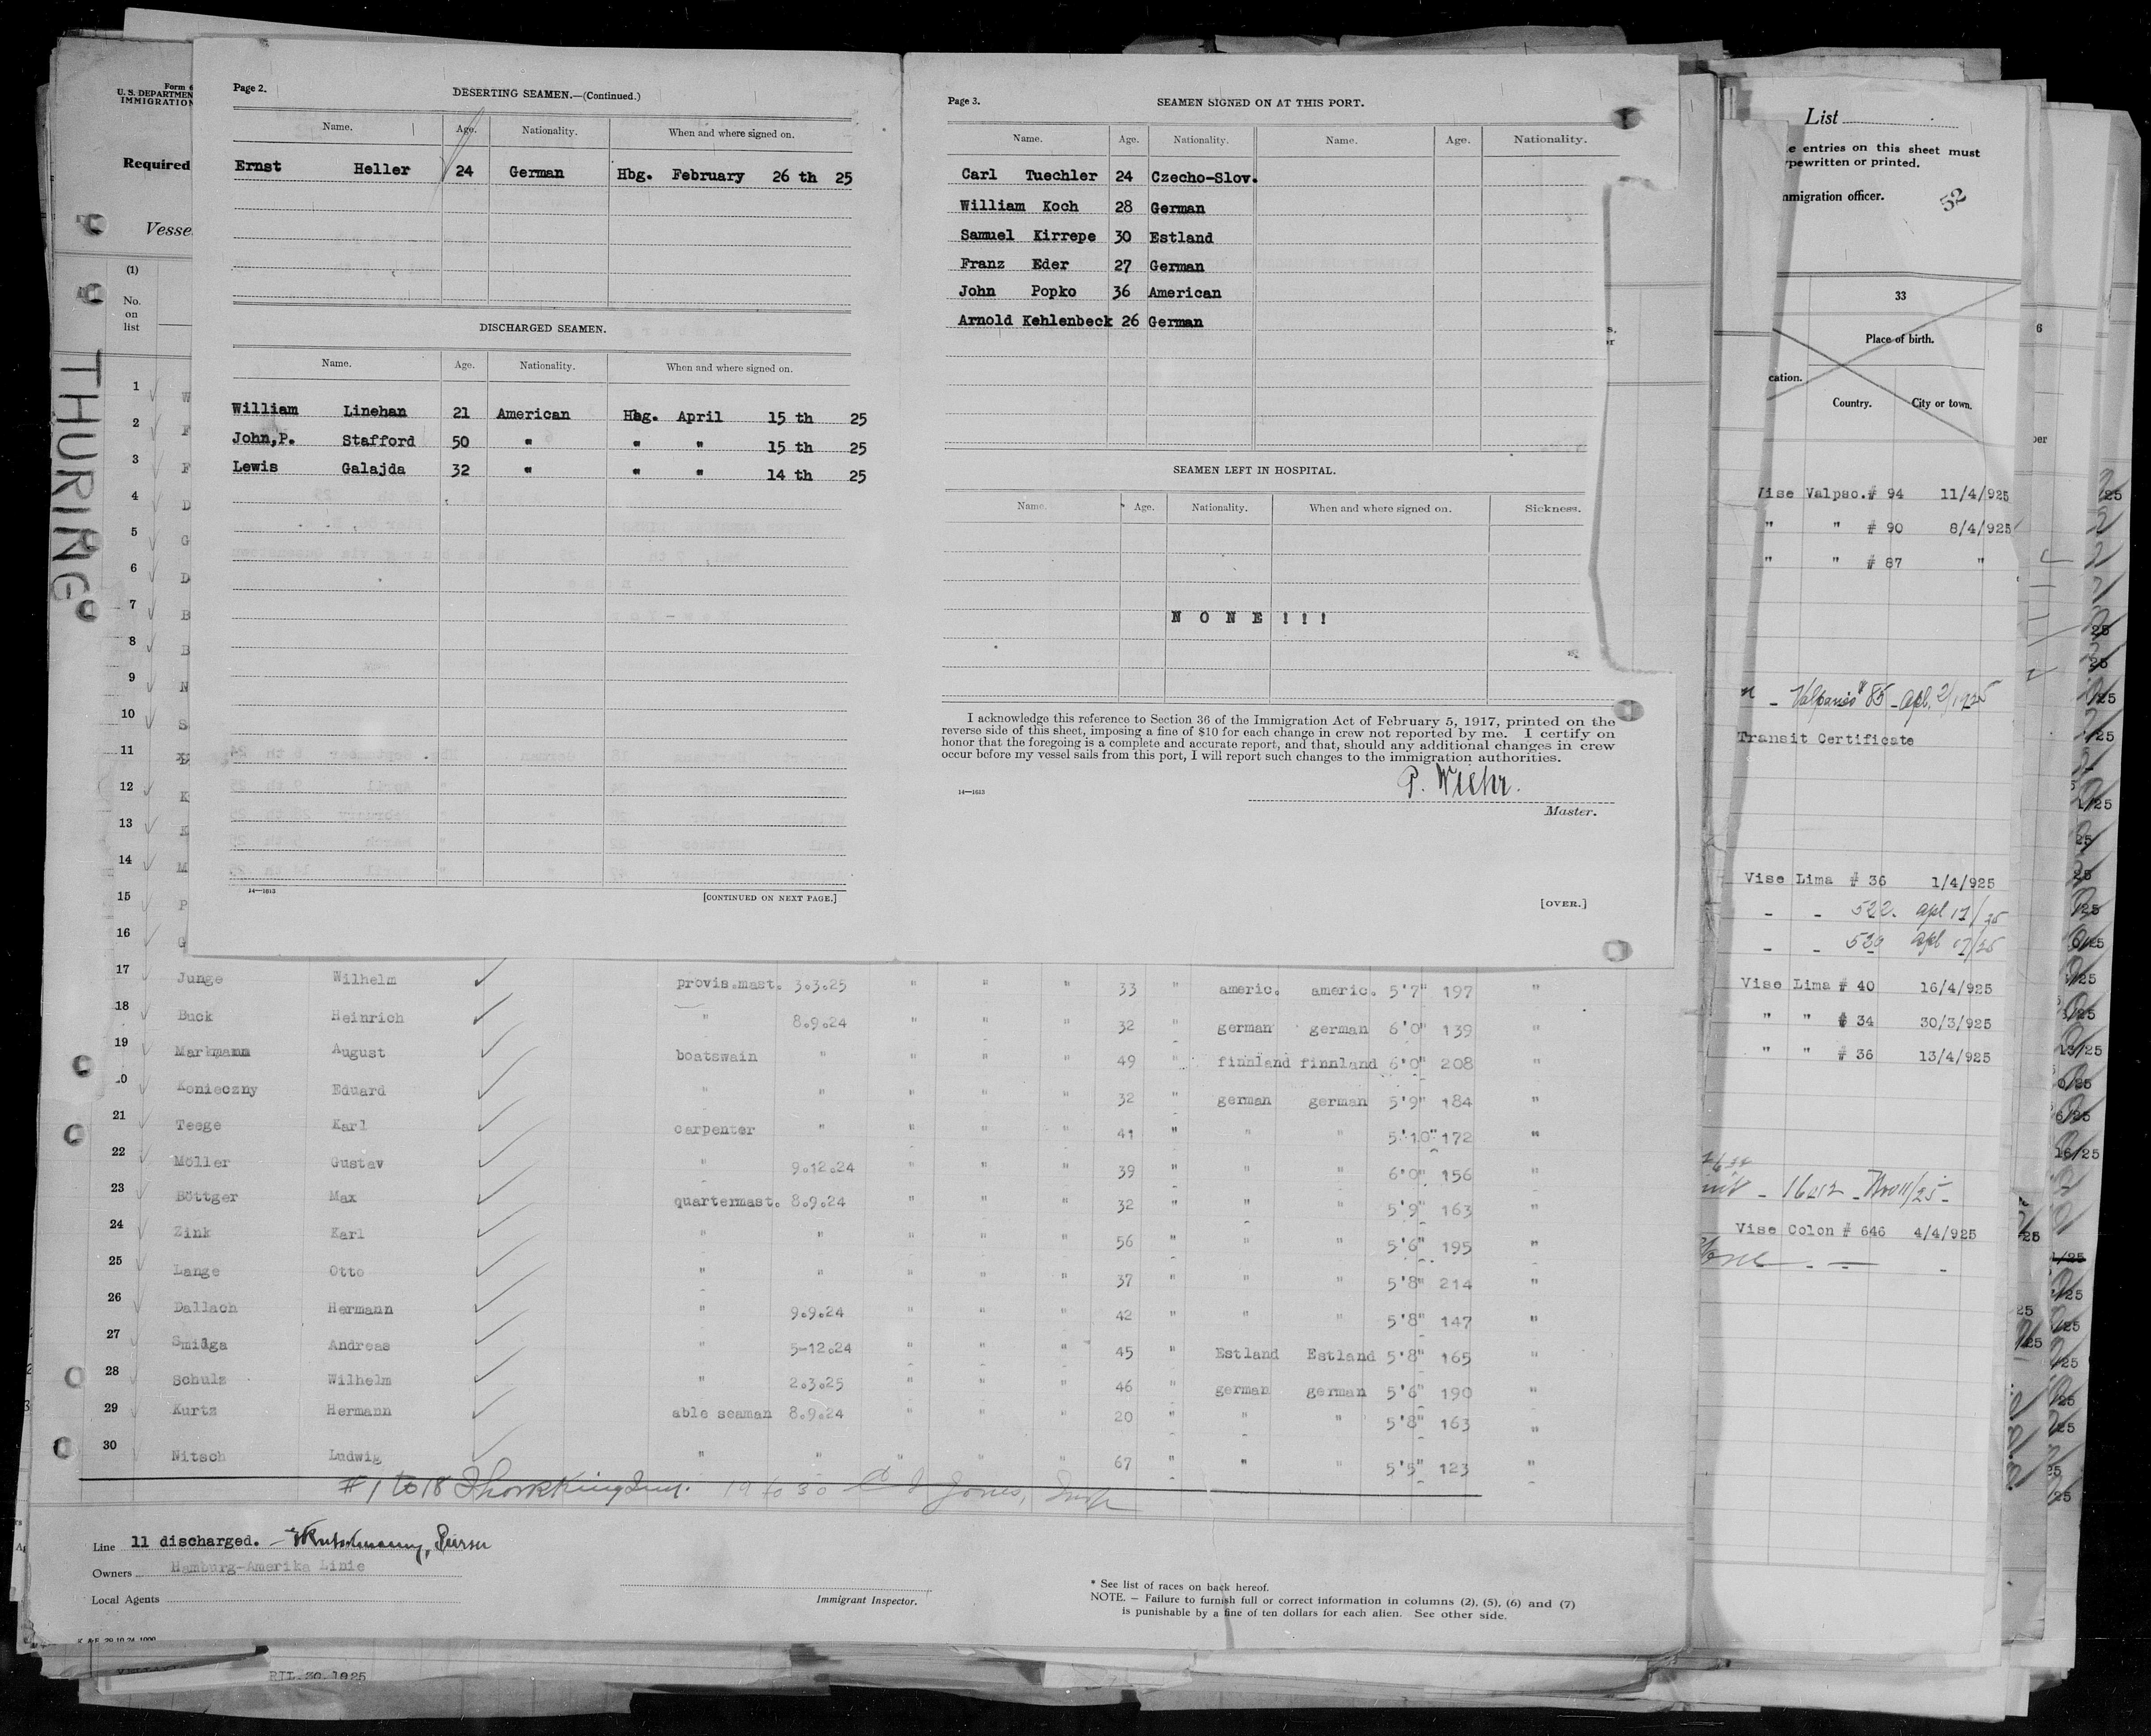 Page 2.
DESERTING SEAMEN.—(Continued.)
Name. Age. Nationality. When and where signed on.
Ernst Heller 24 German Hbg. February 26 th 25
DISCHARGED SEAMEN.
Name. Age. Nationality. When and where signed on.
William Linehan 21 American Hbg. April 15 th 25
John,P. Stafford 50 " " " 15 th 25
Lewis Galajda 32 " " " 14 th 25
14—1613
[CONTINUED ON NEXT PAGE.]
Page 3.
SEAMEN SIGNED ON AT THIS PORT.
Name. Age. Nationality. Name. Age. Nationality.
Carl Tuechler 24 Czecho-Slov.
William Koch 28 German
Samuel Kirrepe 30 Estland
Franz Eder 27 German
John Popko 36 American
Arnold Kehlenbeck 26 German
SEAMEN LEFT IN HOSPITAL.
Name. Age. Nationality. When and where signed on. Sickness.
N O N E ! ! !
I acknowledge this reference to Section 36 of the Immigration Act of February 5, 1917, printed on the
reverse side of this sheet, imposing a fine of $10 for each change in crew not reported by me. I certify on
honor that the foregoing is a complete and accurate report, and that, should any additional changes in crew
occur before my vessel sails from this port, I will report such changes to the immigration authorities.
P. Wiehr.
14—1613
Master.
[OVER.]
Form
U. S. DEPARTMEN
IMMIGRATION
Required
Vesse
(1)
No.
on
list
THURING
1
2
3
4
5
6
7
8
9
10
11
12
13
14
15
16
17 Junge Wilhelm provis.mast. 3.3.25 " " " 33 " americ. americ. 5'7" 197 "
18 Buck Heinrich " 8.9.24 " " " 32 " german german 6'0" 139 "
19 Markmann August boatswain " " " " 49 " finnland finnland 6'0" 208 "
0 Konieczny Eduard " " " " " 32 " german german 5'9" 184 "
21 Teege Karl carpenter " " " " 41 " " " 5'10" 172 "
22 Möller Gustav " 9.12.24 " " " 39 " " " 6'0" 156 "
23 Böttger Max quartermast. 8.9.24 " " " 32 " " " 5'9" 163 "
24 Zink Karl " " " " " 56 " " " 5'6" 195 "
25 Lange Otto " " " " " 37 " " " 5'8" 214 "
26 Dallach Hermann " 9.9.24 " " " 42 " " " 5'8" 147 "
27 Smidga Andreas " 5-12.24 " " " 45 " Estland Estland 5'8" 165 "
28 Schulz Wilhelm " 2.3.25 " " " 46 " german german 5'6" 190 "
29 Kurtz Hermann able seaman 8.9.24 " " " 20 " " " 5'8" 163 "
30 Nitsch Ludwig " " " " " 67 " " " 5'5" 123 "
#1 to 18 19 to 30 Jones, Insp
Line 11 discharged.
Owners Hamburg-Amerika Linie
Local Agents
Immigrant Inspector.
* See list of races on back hereof.
NOTE. — Failure to furnish full or correct information in columns (2), (5), (6) and (7)
is punishable by a fine of ten dollars for each alien. See other side.
List
e entries on this sheet must
pewritten or printed.
mmigration officer.
52
33
Place of birth.
cation.
Country. City or town.
Vise Valpso.# 94 11/4/925
" " # 90 8/4/925
" " # 87 "
Transit Certificate
Vise Lima # 36 1/4/925
- - 522. apl 17/25
Vise Lima # 40 16/4/925
" " # 34 30/3/925
" " # 36 13/4/925
Vise Colon # 646 4/4/925